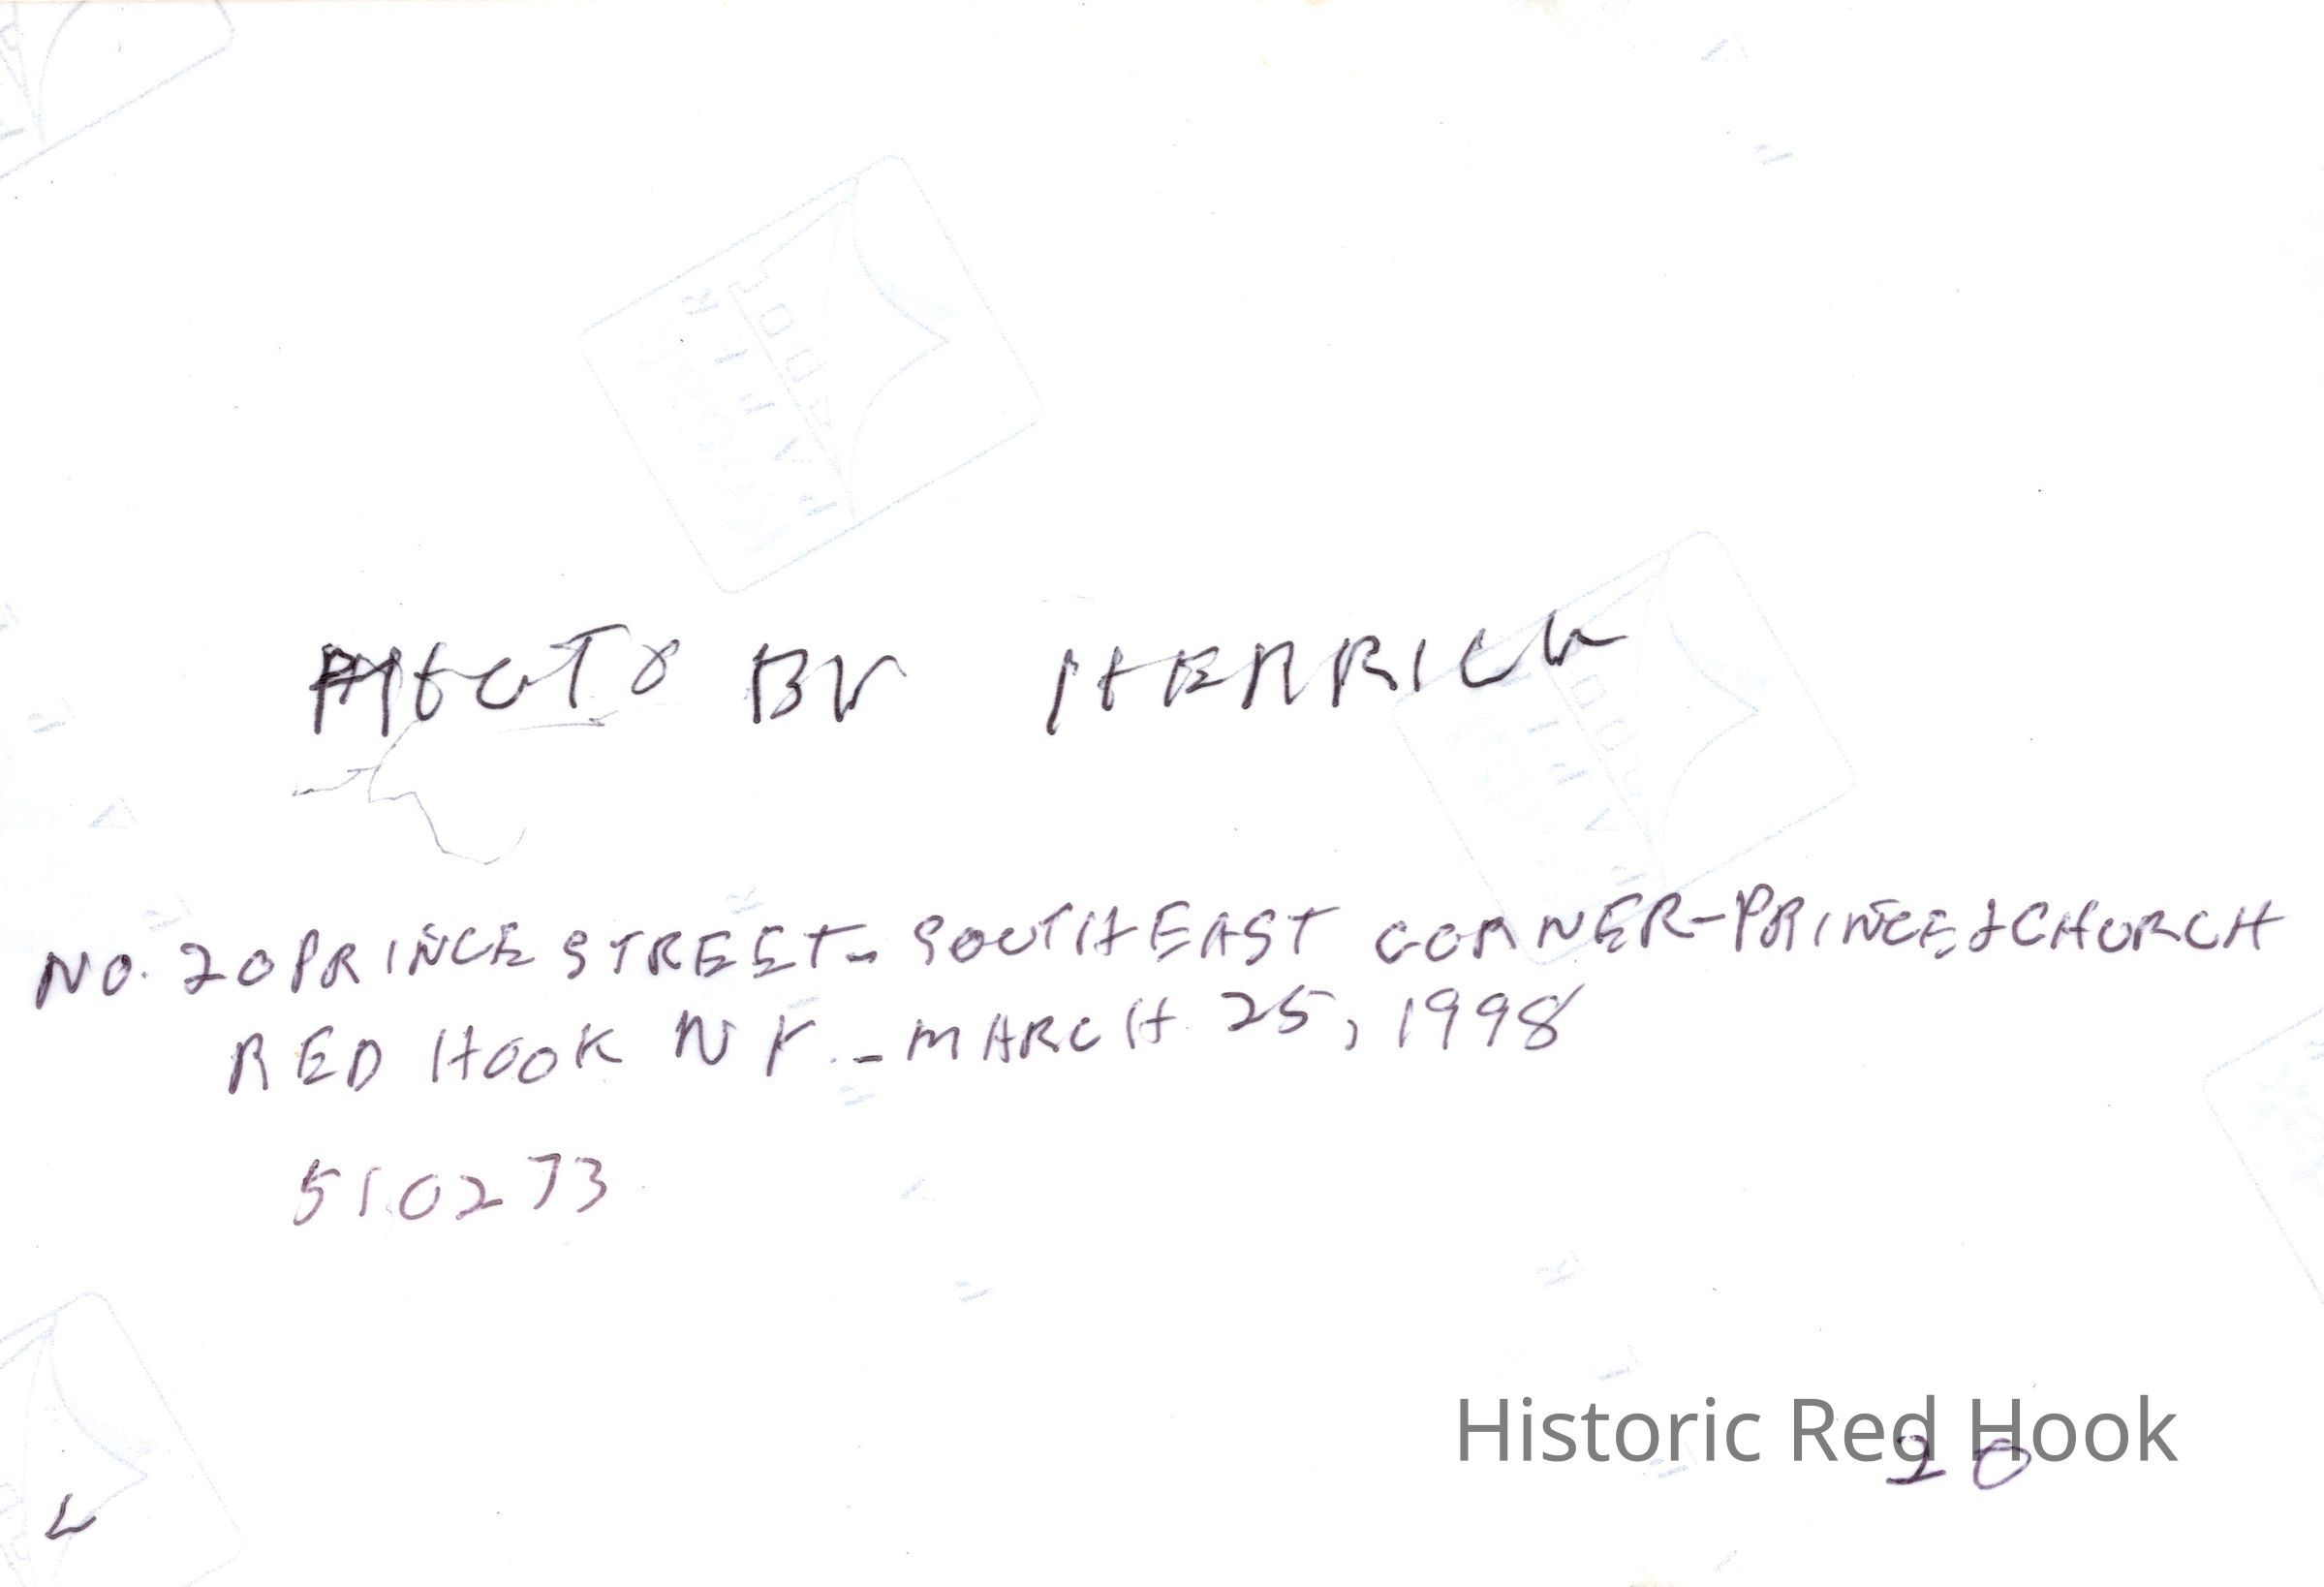 PHOTO BY HENRICK
NO. 20 PRINCE STREET - SOUTHEAST CORNER - PRINCE & CHURCH
RED HOOK N Y. - MARCH 25, 1998
510273
Historic Red Hook
20
L